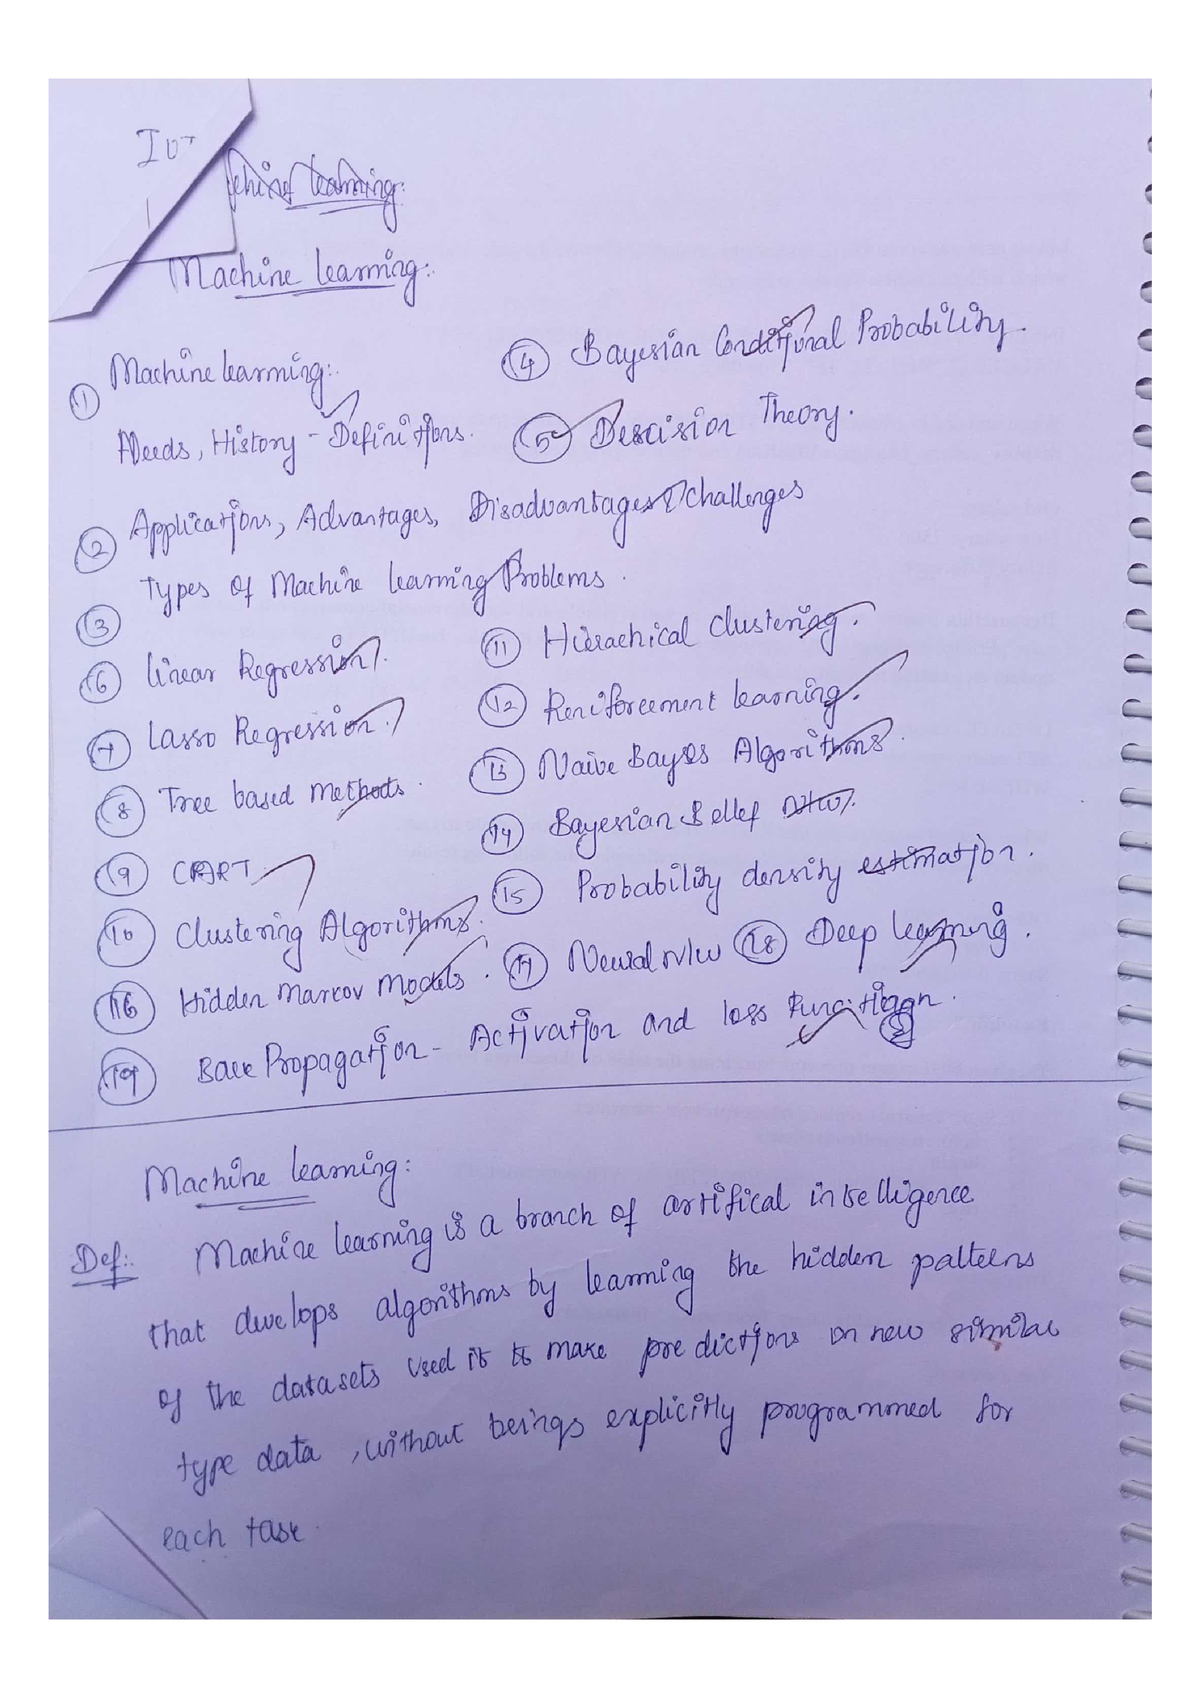 IoT
chine learning:
1
Machine learning:
① Machine learning:
Needs, History - Definitions.
④ Bayesian Conditional Probability.
⑤ Descision Theory.
② Applications, Advantages, Disadvantages & challenges
③ Types of Machine learning Problems.
⑥ linear Regression.
⑦ Lasso Regression.
⑧ Tree based methods.
⑨ CART
⑩ Clustering Algorithms.
⑪ Hierachical clustering.
⑫ Reniforcement learning.
⑬ Naive Bayes Algorithms.
⑭ Bayesian Belief N/w.
⑮ Probability density estimation.
⑯ Hidden Marcov Models. ⑰ Neural N/w ⑱ Deep learning.
⑲ Back Propagation - Activation and loss Function.
Machine learning:
Def:- Machine learning is a branch of artifical intelligence
that develops algorithms by learning the hidden patterns
of the datasets used it to make predictions on new similar
type data, without beings explicitly programmed for
each task.